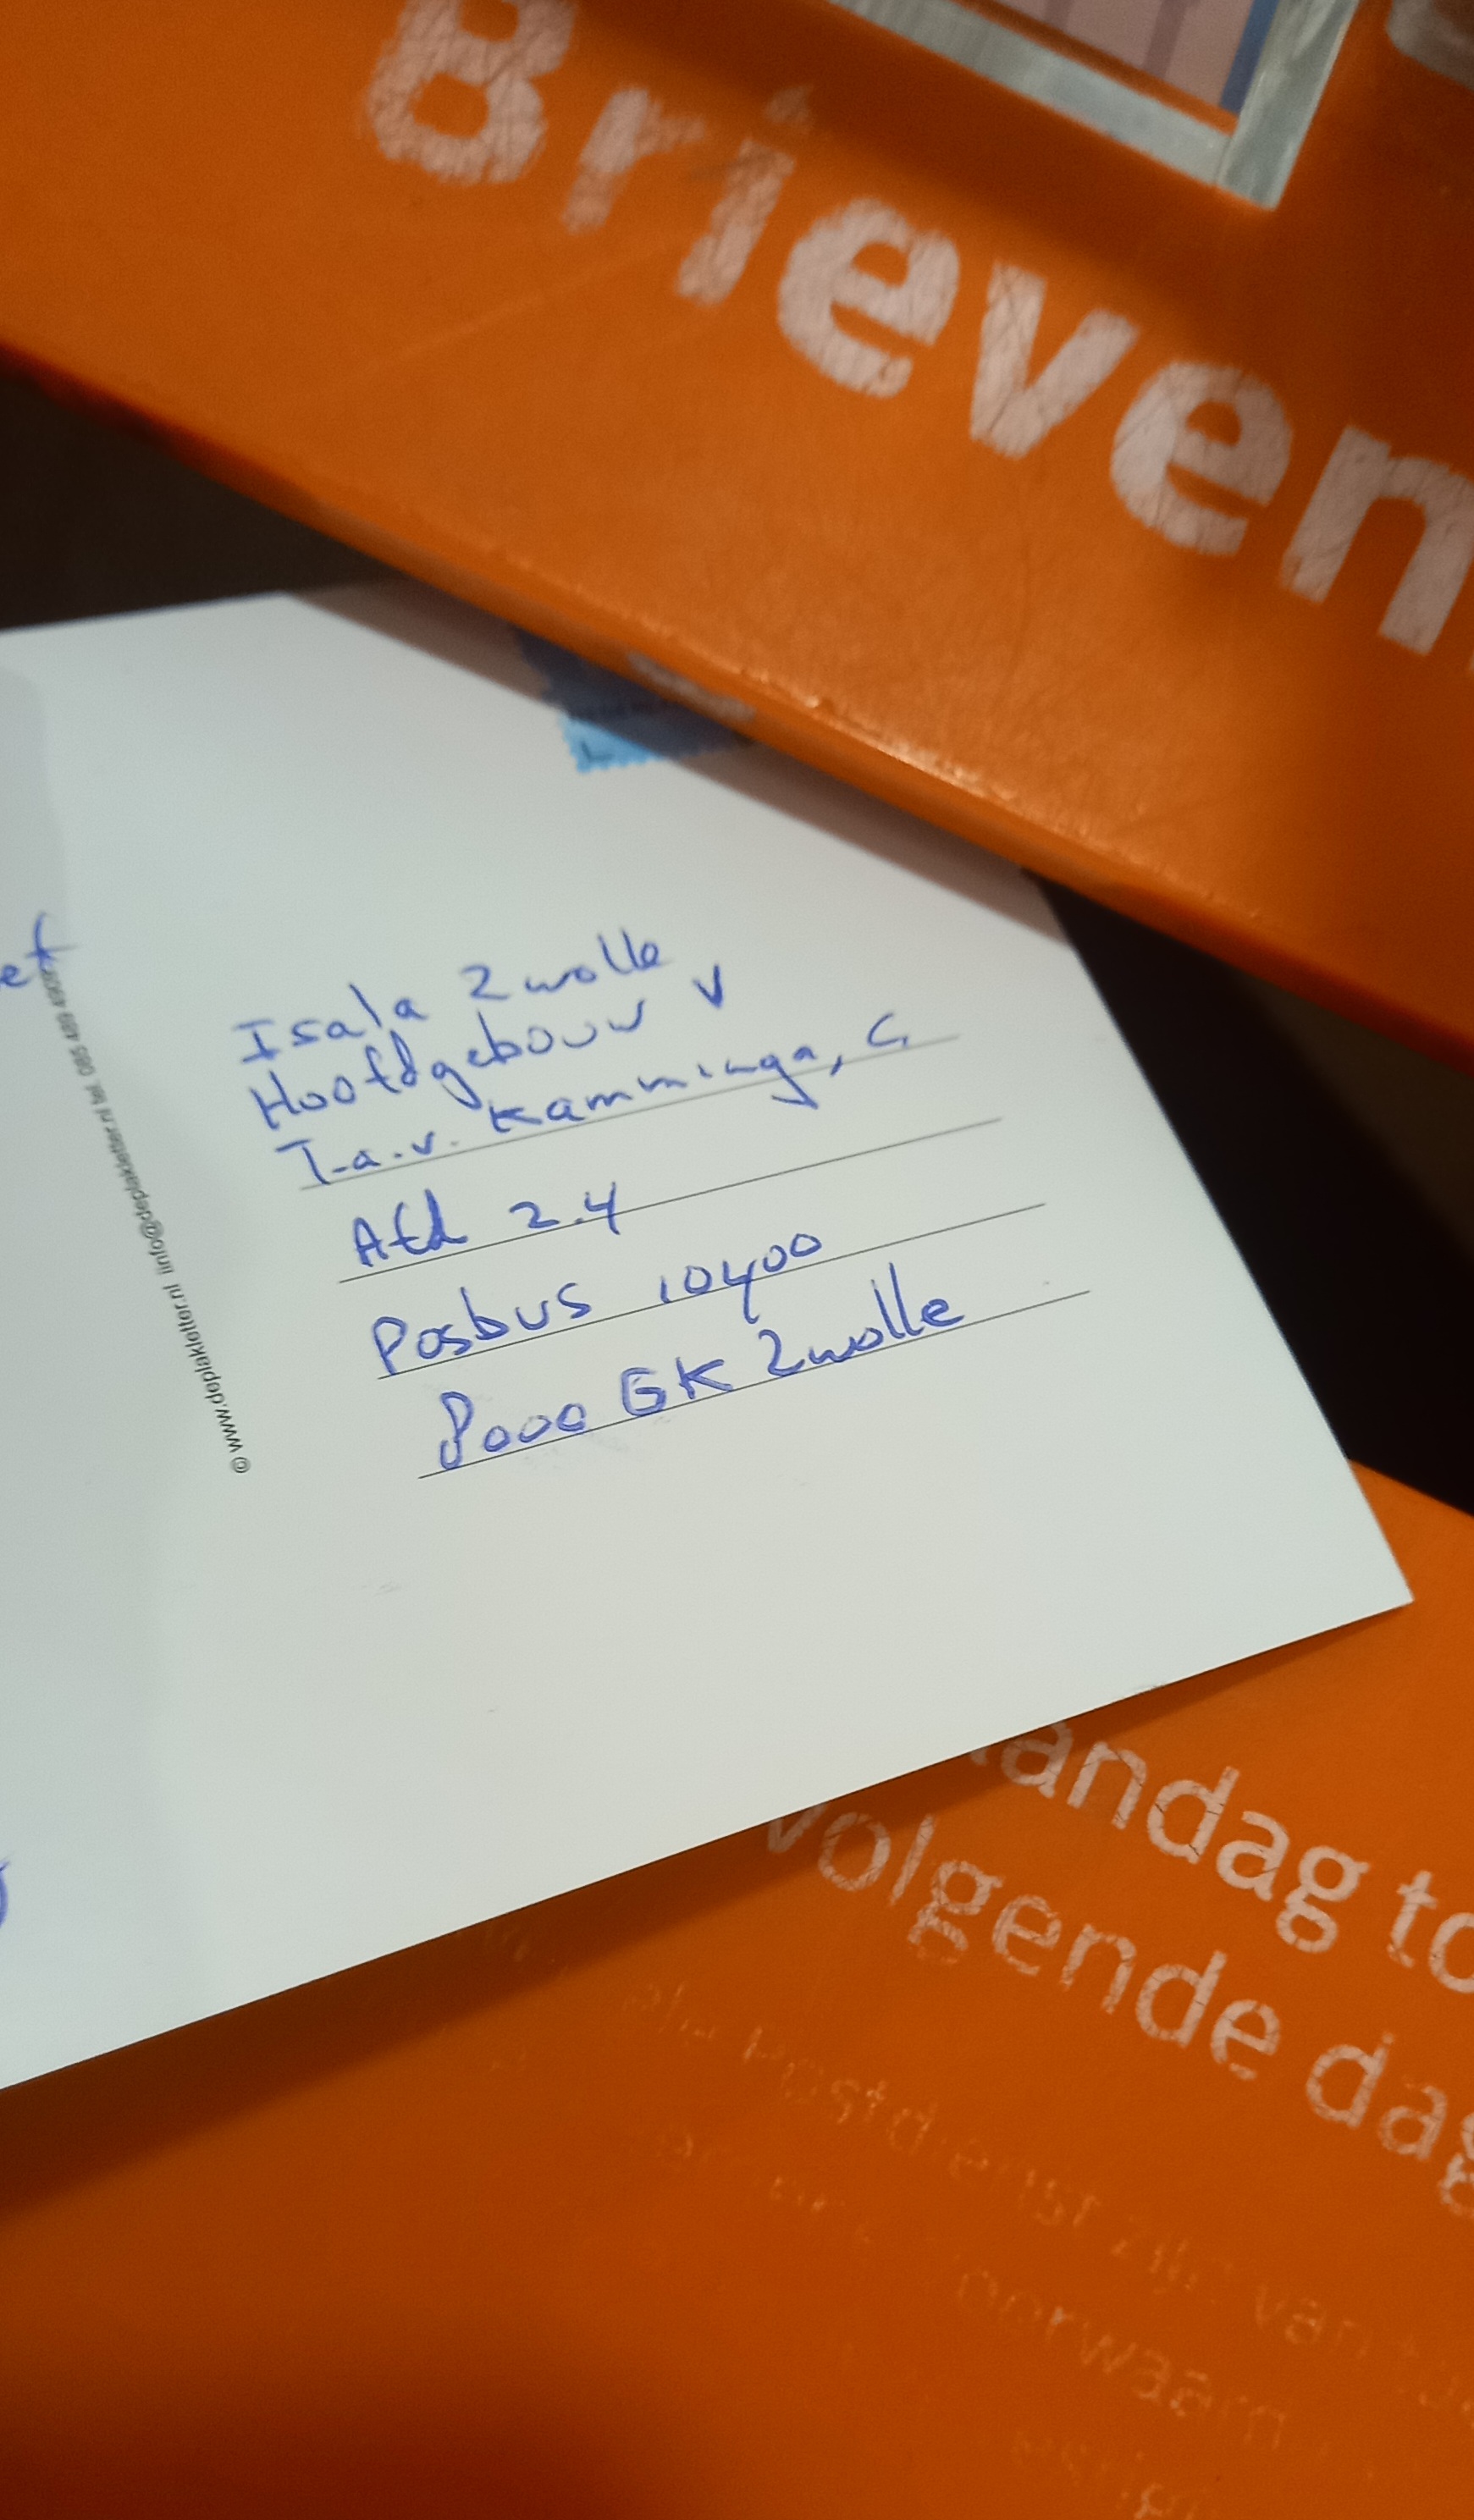 Brieven
et
Isala Zwolle
Hoofdgebouw V
T.a.v. Kamminga, C
Afd 2.4
Posbus 10400
8000 GK Zwolle
© www.deplakletter.nl |info@deplakletter.nl tel. 085 489
andag to
volgende dag
Postdienst zijn van
voorwaarn